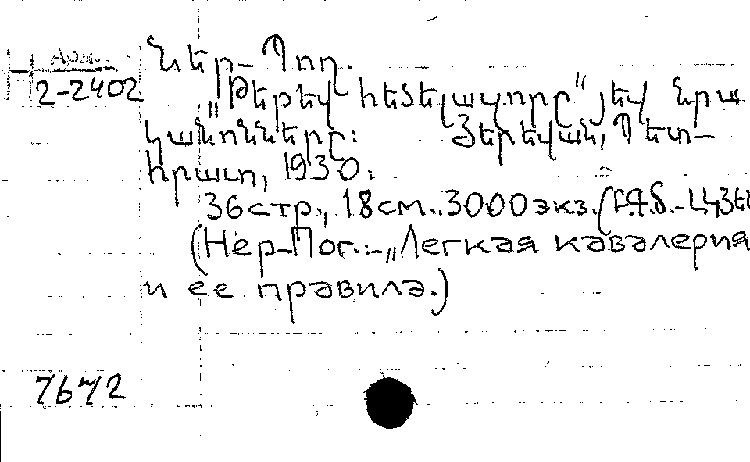 Арм.
2-2402
Ներ-Պող.
„Թեթեվ հեծելազորը" յեվ նրա
կանոնները: Յերեվան, Պետ-
հրատ, 1930.
36 стр., 18 см. 3000 экз.
(Нер-Пог. - „Легкая кавалерия
и ее правила.)
7672